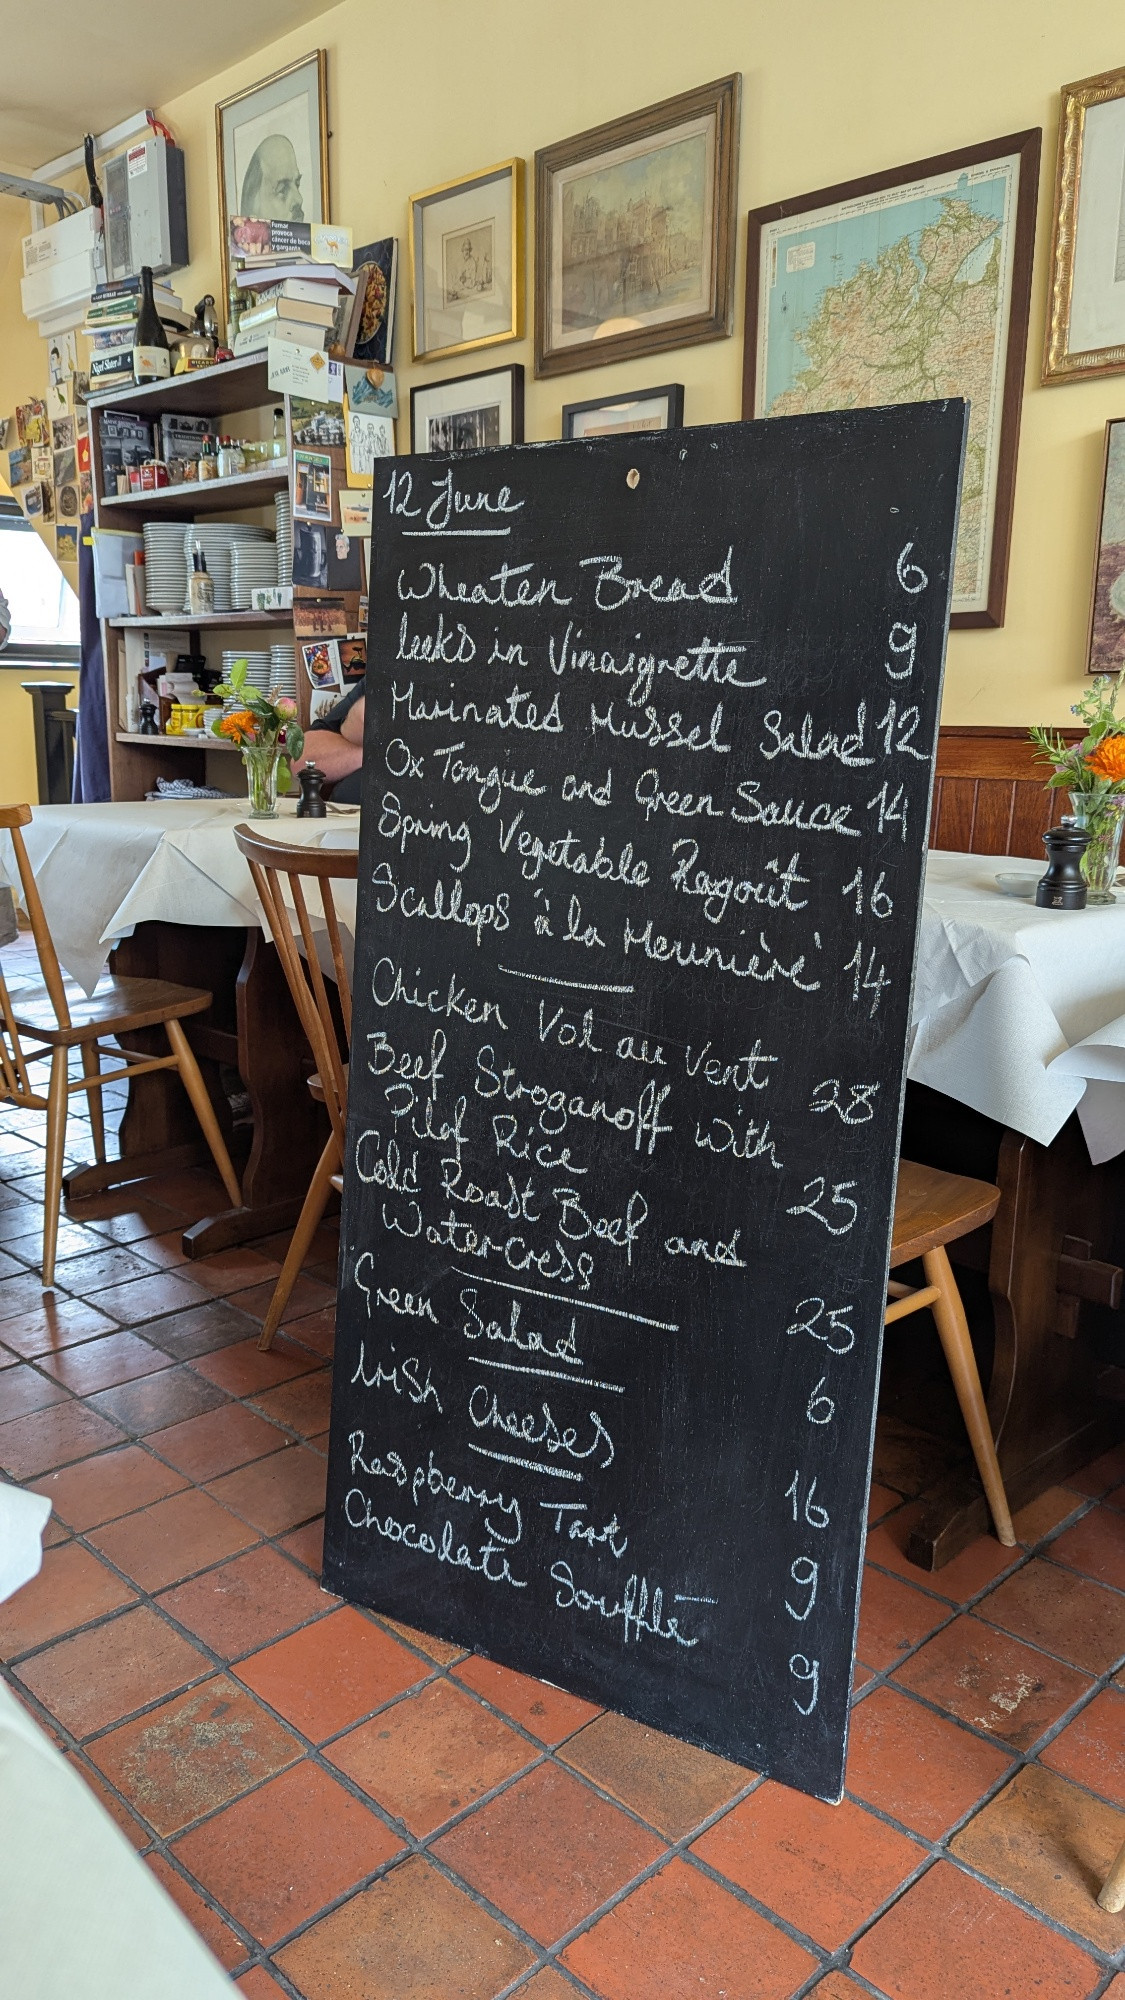 Fumar
provoca
cáncer de boca
y garganta
Nigel Slater
12 June
Wheaten Bread 6
leeks in Vinaigrette 9
Marinated Mussel Salad 12
Ox Tongue and Green Sauce 14
Spring Vegetable Ragoût 16
Scallops à la Meunière 14
Chicken Vol au Vent
28
Beef Stroganoff with
Pilaf Rice
25
Cold Roast Beef and
Watercress
25
Green Salad
6
Irish Cheeses
16
Raspberry Tart
9
Chocolate Soufflé
9